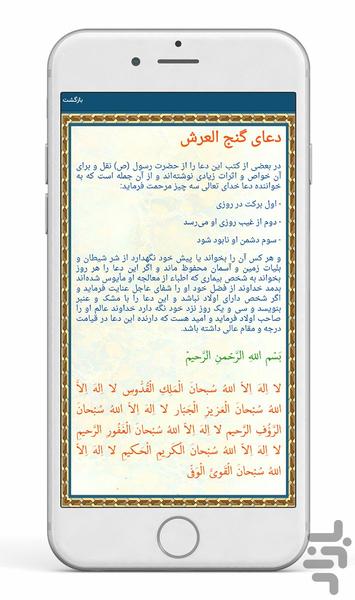 بازگشت
دعای گنج العرش
در بعضی از کتب این دعا را از حضرت رسول (ص) نقل و برای
آن خواص و اثرات زیادی نوشته‌اند و از آن جمله است که به
خواننده دعا خدای تعالی سه چیز مرحمت فرماید:
- اول برکت در روزی
- دوم از غیب روزی او می‌رسد
- سوم دشمن او نابود شود
و هر کس آن را بخواند یا پیش خود نگهدارد از شر شیطان و
بلیات زمین و آسمان محفوظ ماند و اگر این دعا را هر روز
بخواند به شخص بیماری که اطباء از معالجه او مایوس شده‌اند
بدمد خداوند از فضل خود او را شفای عاجل عنایت فرماید و
اگر شخص دارای اولاد نباشد و این دعا را با مشک و عنبر
بنویسد و سی و یک روز نزد خود نگه دارد خداوند عالم او را
صاحب اولاد فرماید و امید هست که دارنده این دعا در قیامت
درجه و مقام عالی داشته باشد.
بَسْمِ اللهِ الرَّحْمنِ الرَّحیمْ
لا اِلهَ اِلاَّ اللهُ سُبحانَ الْمَلِكِ الْقُدّوسِ لا اِلهَ اِلاَّ
اللهُ سُبْحانَ الْعَزیزِ الْجَبّارِ لا اِلهَ اِلاَّ اللهُ سُبْحانَ
الرَّؤُفِ الرَّحیمِ لا اِلهَ اِلاَّ اللهُ سُبْحانَ الْغَفُورِ الرَّحیمِ
لا اِلهَ اِلاَّ اللهُ سُبْحانَ الْکَریمِ الْحَکیمِ لا اِلهَ اِلاَّ
اللهُ سُبْحانَ الْقَویِّ الْوَفیِّ
بازار